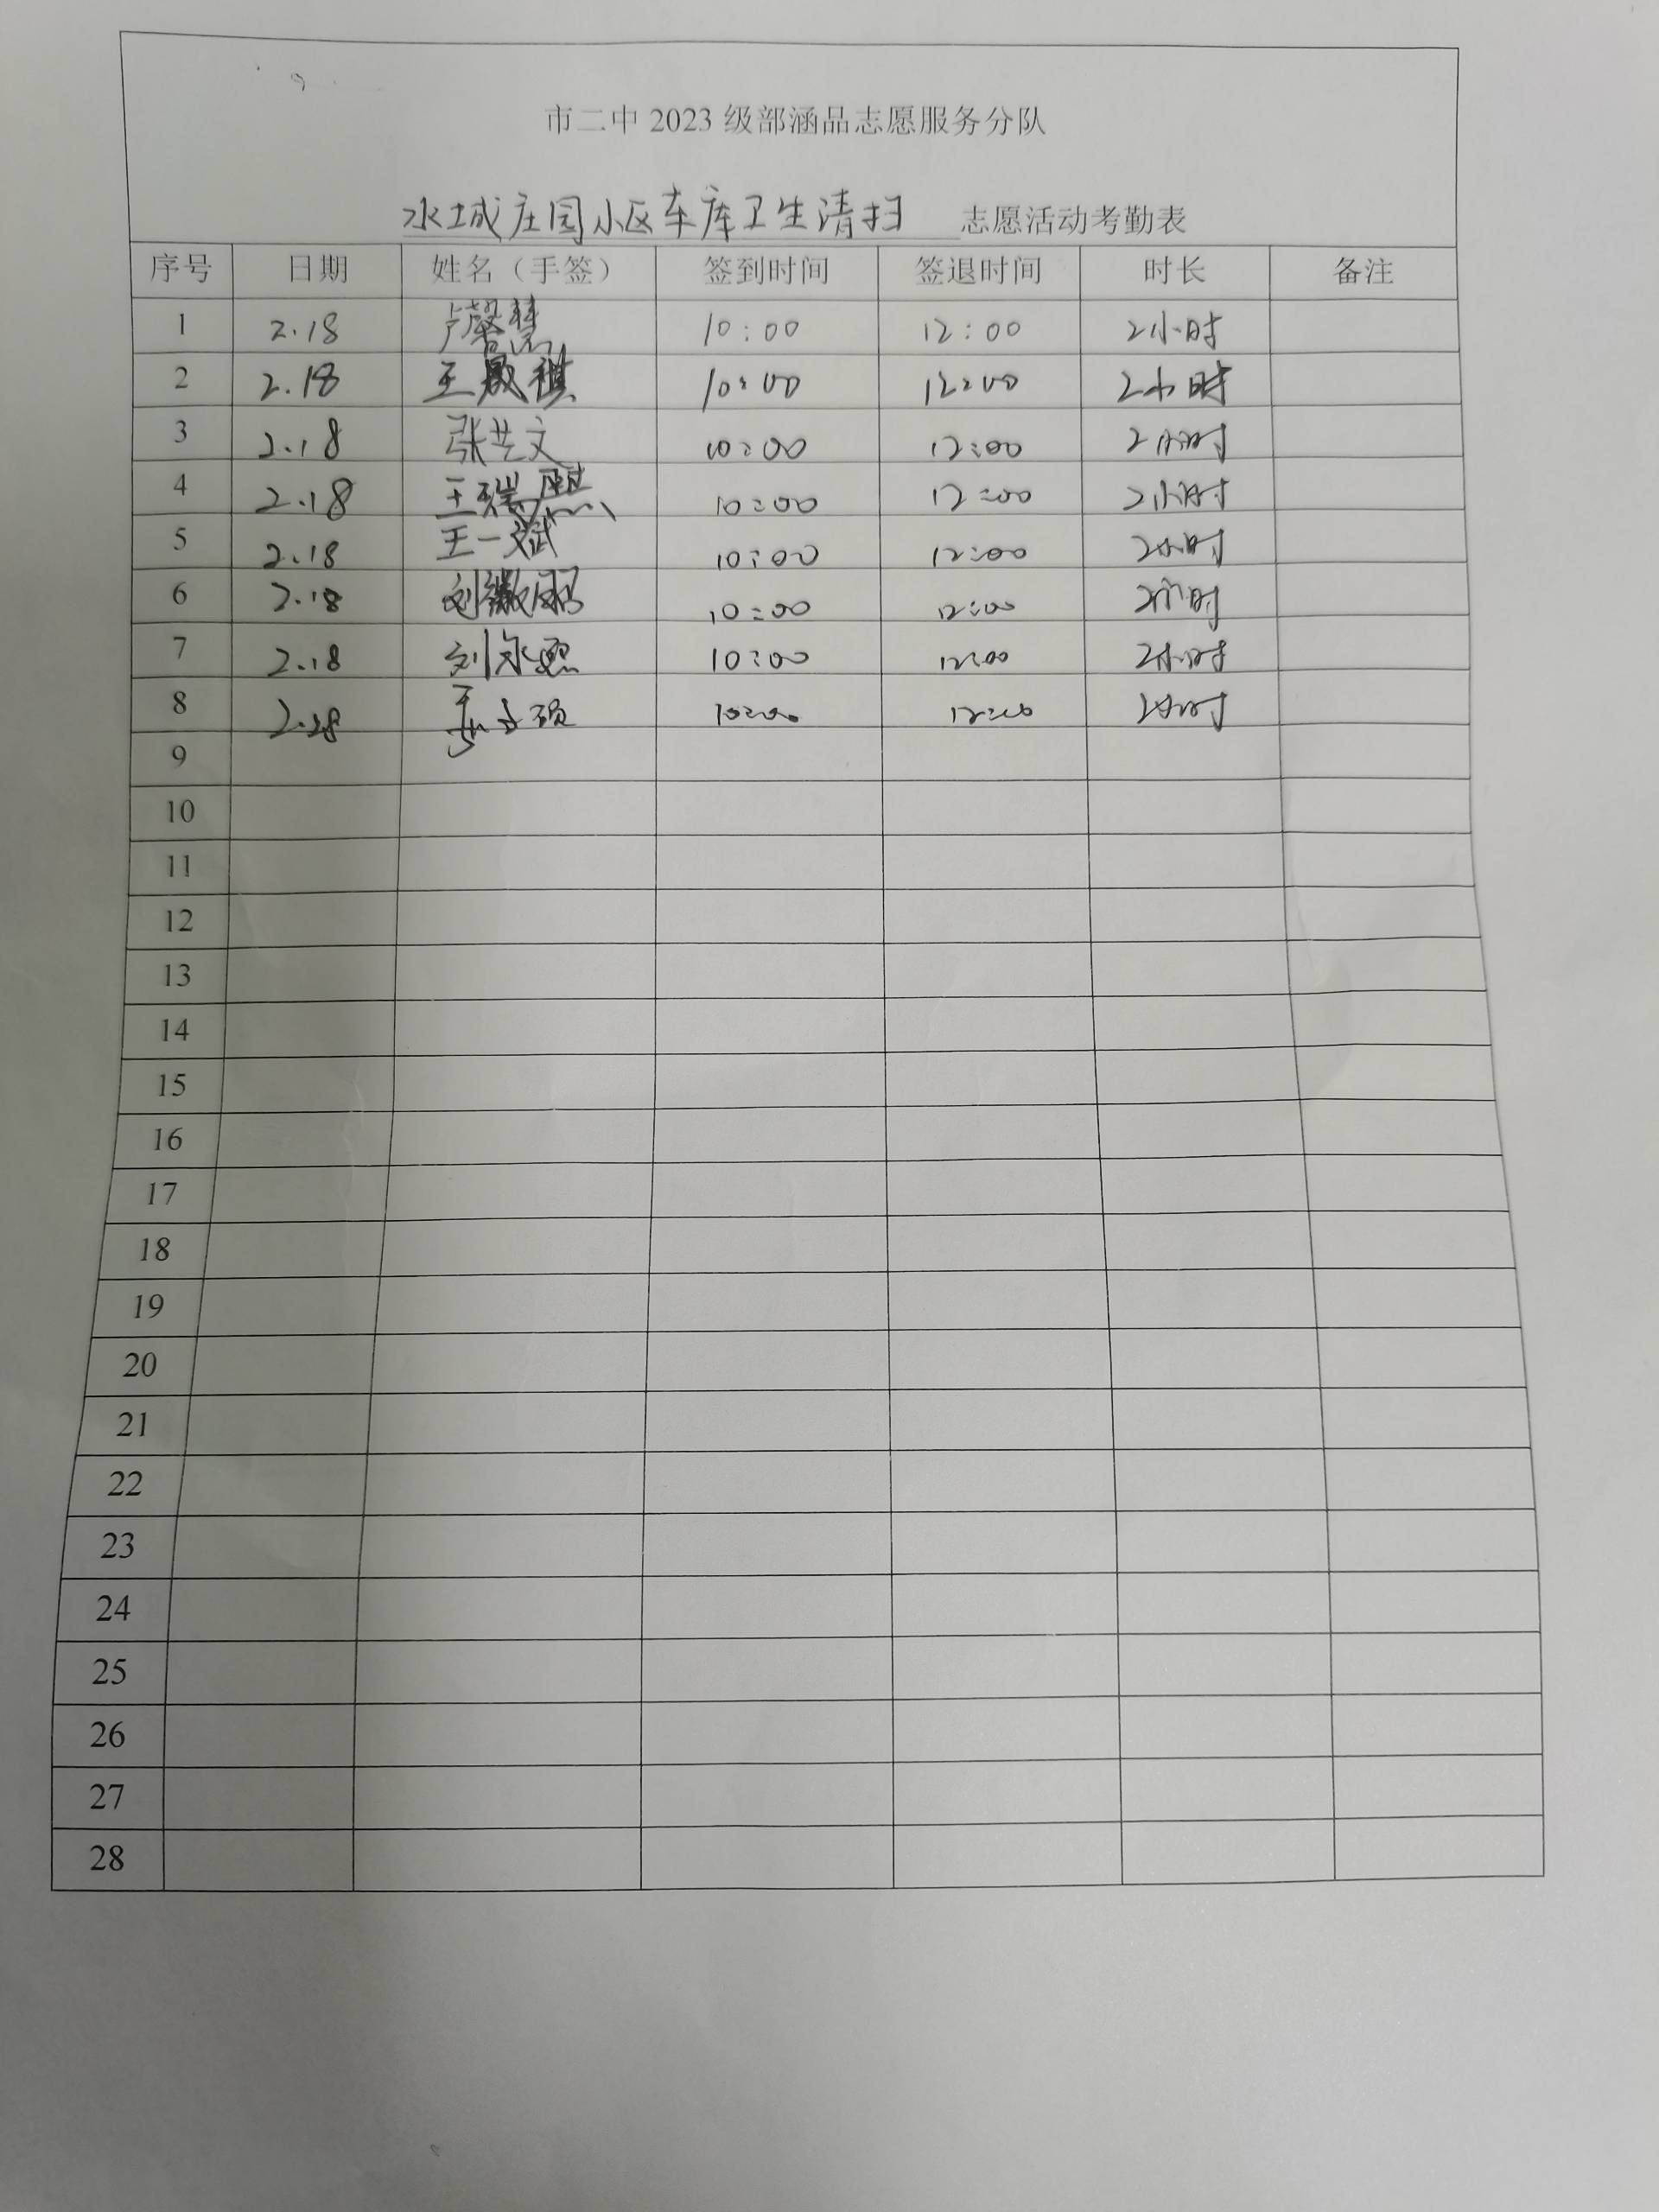 市二中 2023 级部涵品志愿服务分队
水城庄园小区车库卫生清扫 志愿活动考勤表
序号 日期 姓名（手签） 签到时间 签退时间 时长 备注
1 2.18 卢馨慧 10:00 12:00 2小时
2 2.18 王晟祺 10:00 12:00 2小时
3 2.18 张艺文 10:00 12:00 2小时
4 2.18 王瑞熙 10:00 12:00 2小时
5 2.18 王一斌 10:00 12:00 2小时
6 2.18 刘 10:00 12:00 2小时
7 2.18 刘永熙 10:00 12:00 2小时
8 2.18 10:00 12:00 2小时
9
10
11
12
13
14
15
16
17
18
19
20
21
22
23
24
25
26
27
28